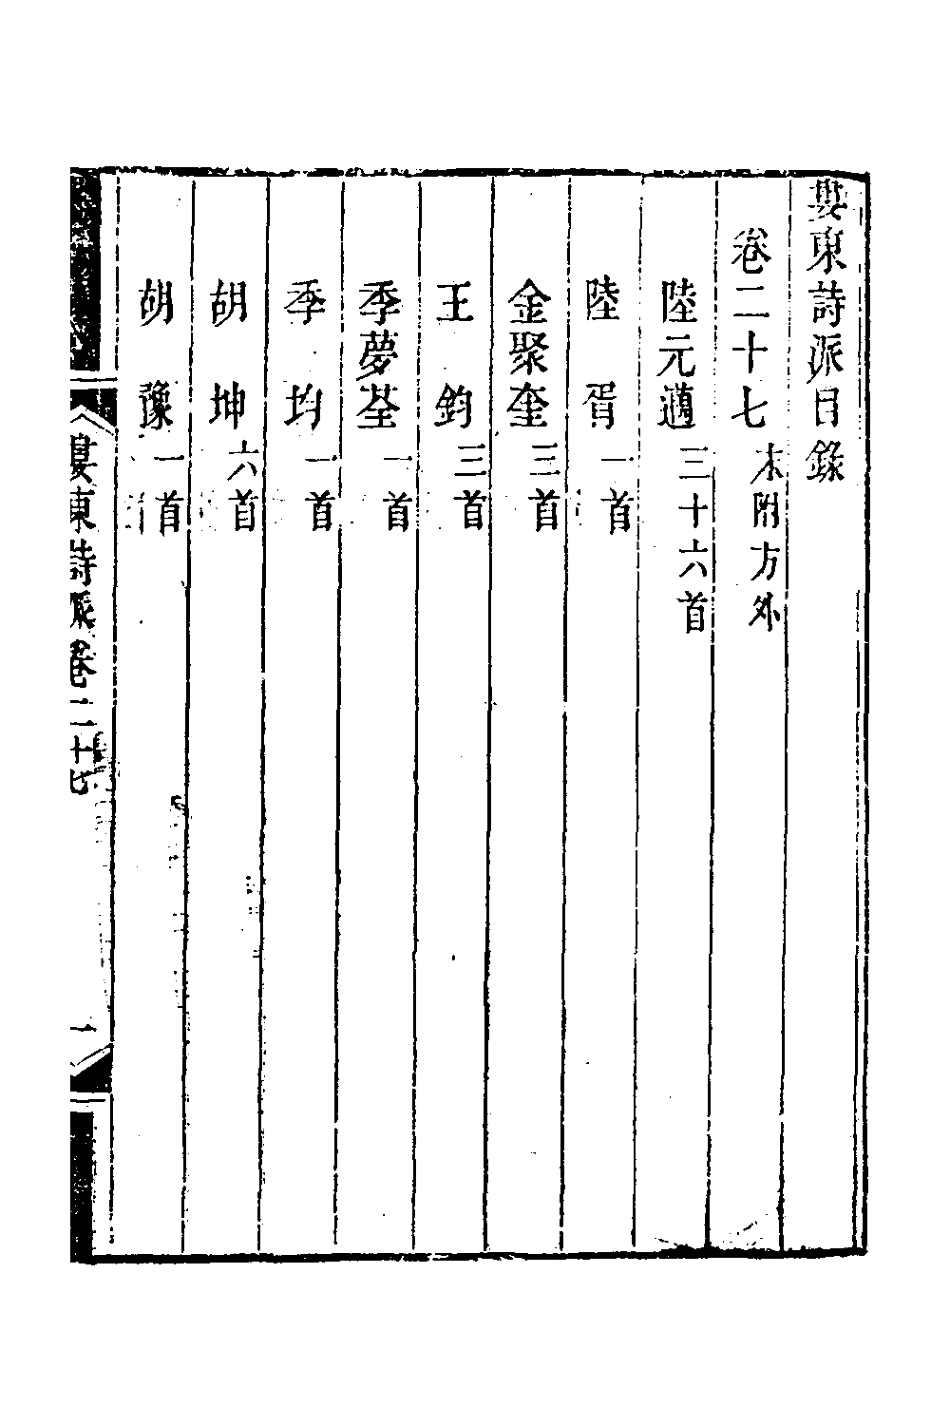 婁東詩派目錄
卷二十七 末附方外
陸元邁 三十六首
陸胥 一首
金聚奎 三首
王鈞 三首
季夢荃 一首
季均 一首
胡坤 六首
胡豫 一首
婁東詩派卷二十七 一